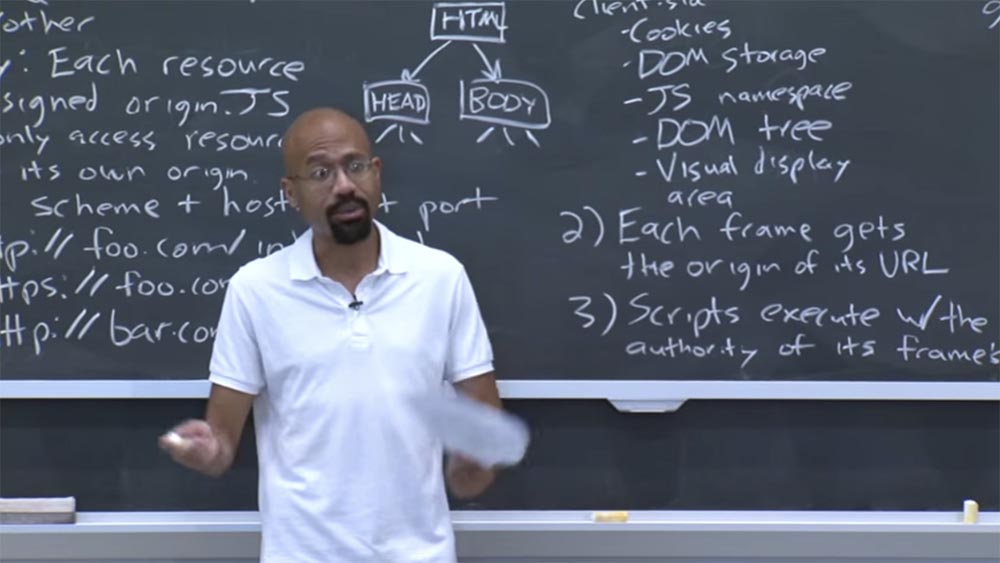 other
: Each resource
signed origin. JS
only access resourc
its own origin.
scheme + host + port
tp:// foo.com/in
tps:// foo.co
ttp:// bar.co
HTML
HEAD
BODY
Client-sid
- Cookies
- DOM storage
- JS namespace
- DOM tree
- Visual display
area
2) Each frame gets
the origin of its URL
3) Scripts execute w/the
authority of its frame's